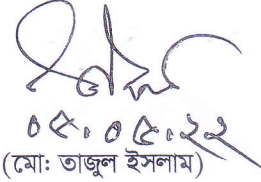 ০৫.০৫.২২
(মো: তাজুল ইসলাম)